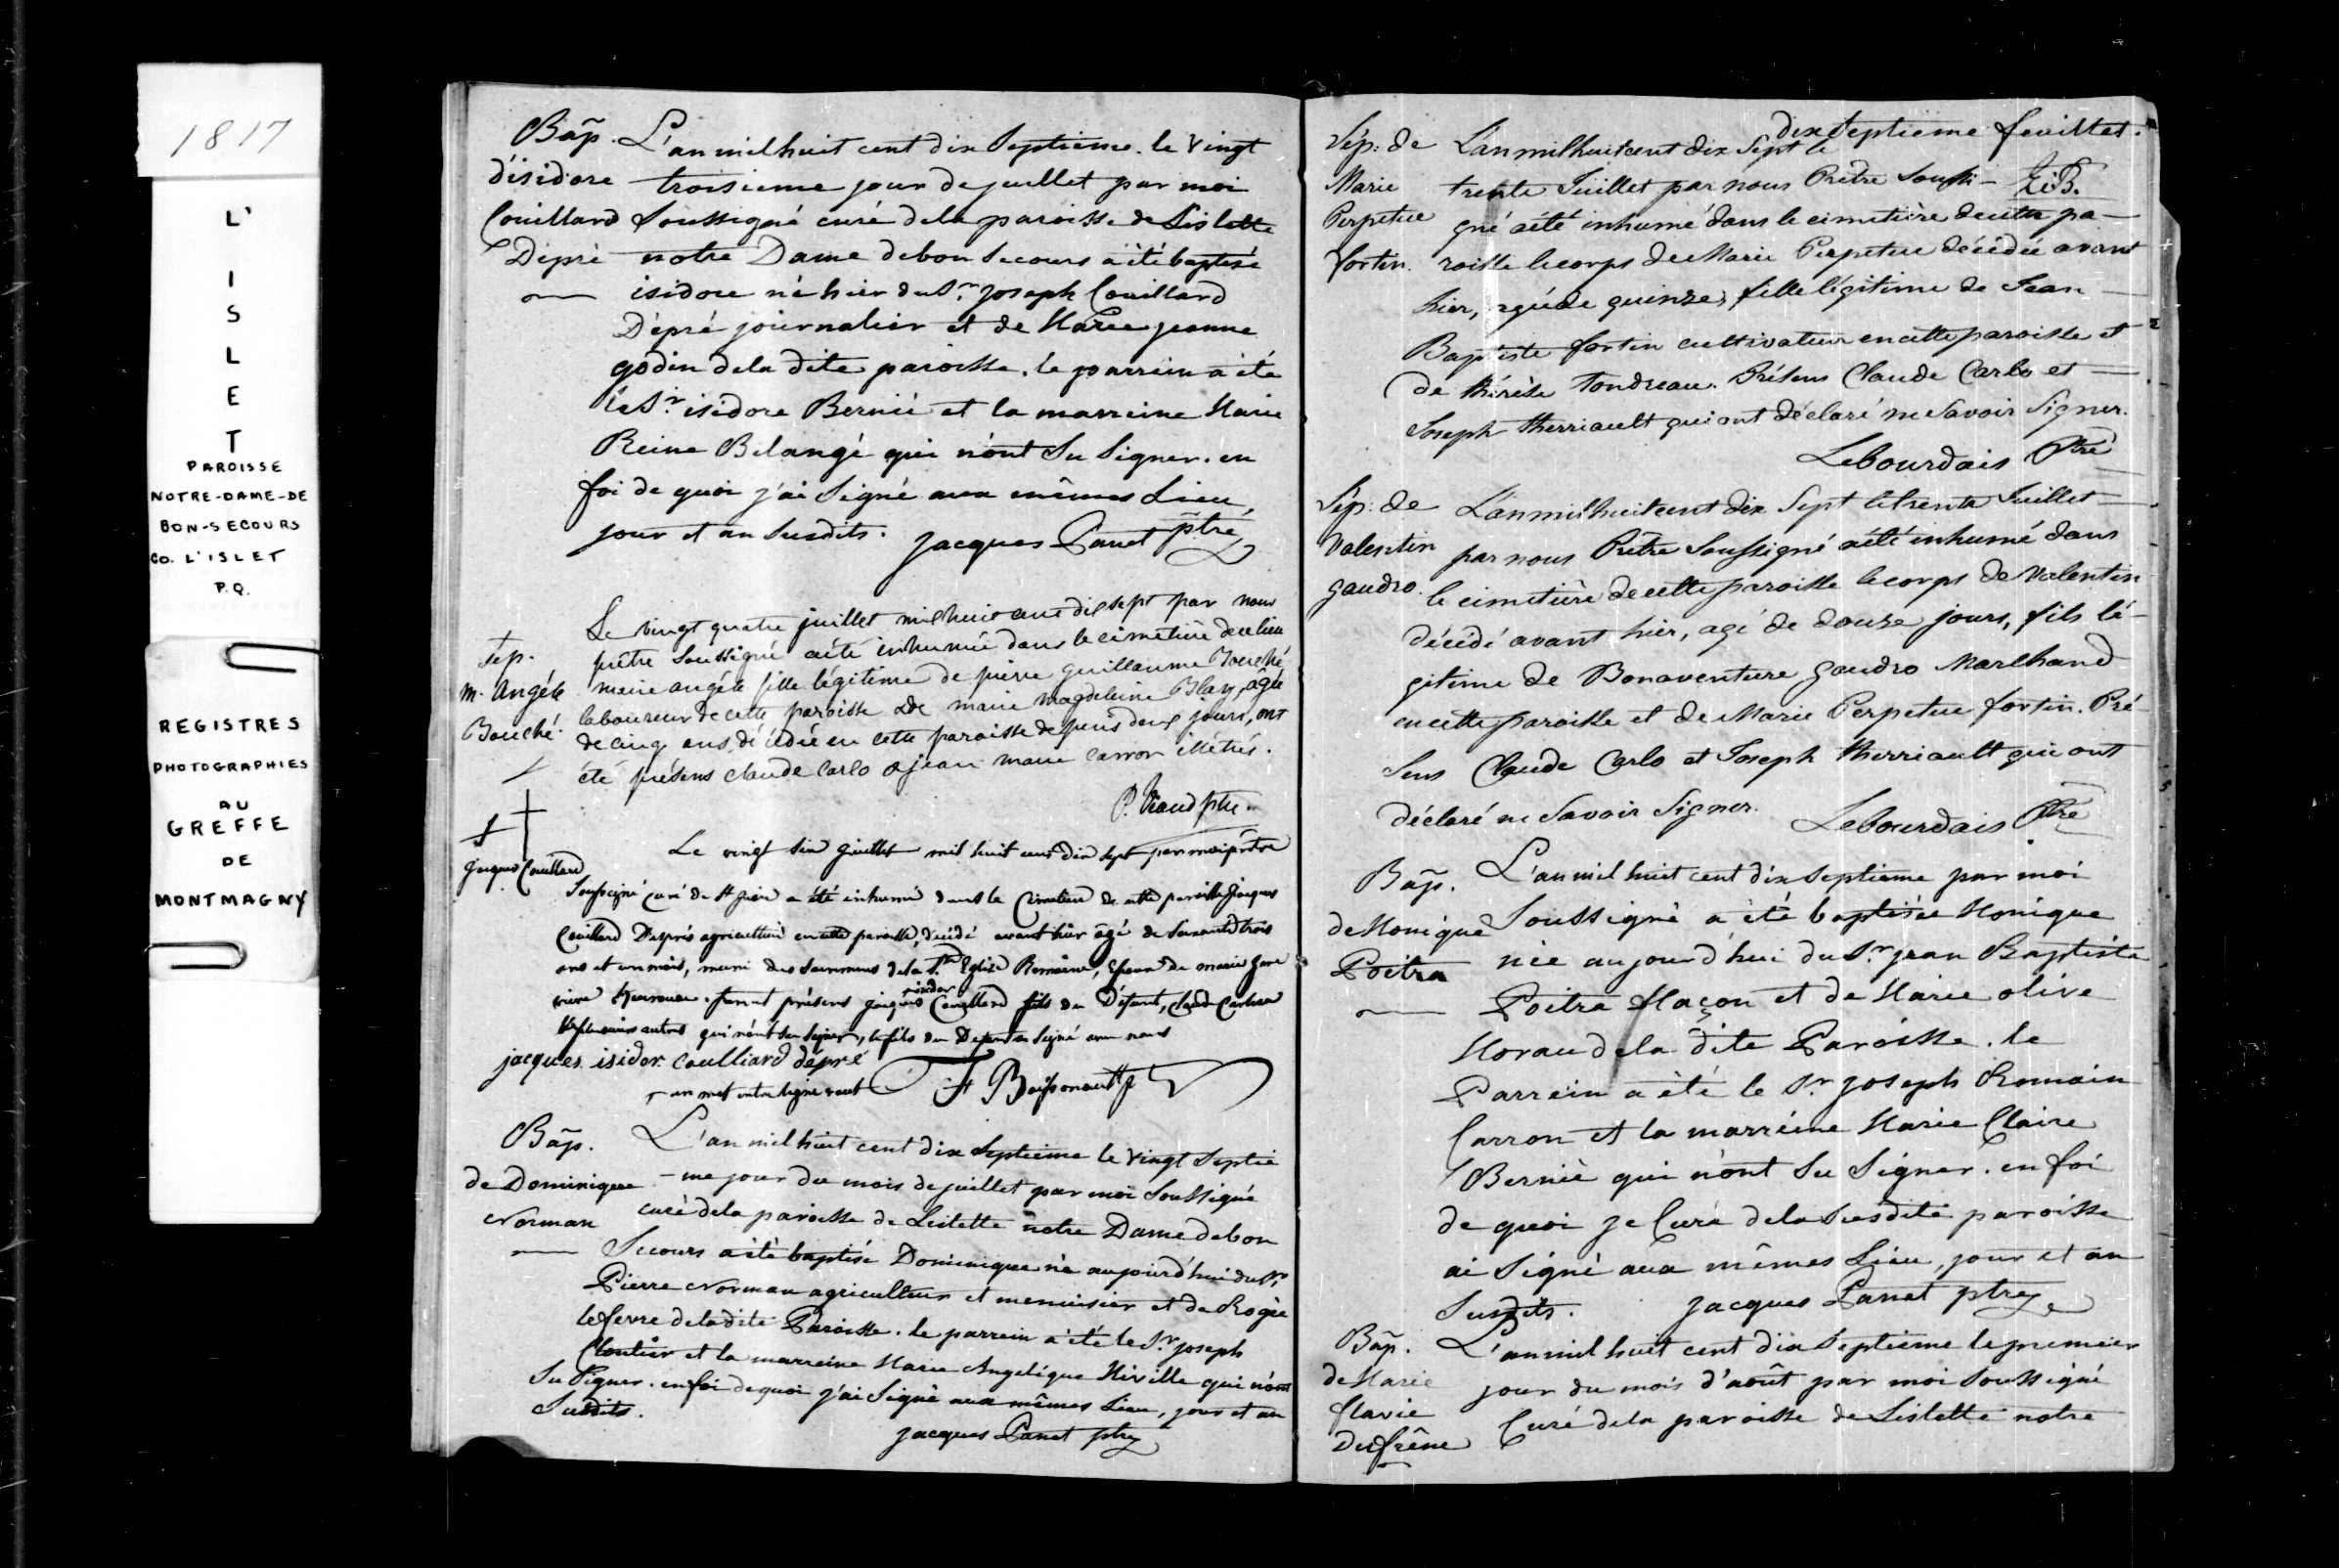 1817
L'
I
S
L
E
T
PAROISSE
NOTRE-DAME-DE
BON-SECOURS
CO. L'ISLET
P.Q.
REGISTRES
PHOTOGRAPHIES
AU
GREFFE
DE
MONTMAGNY
Bap̃. L'an mil huit cent dix Septième. le Vingt
d'isidore troisieme jour de juillet par moi
Couillard Soussigné curé dela paroisse de Lislette
Dépré notre Dame debon Secours a été baptisé
isidore né hier du Sr. Joseph Couillard
Dépré journalier et de Marie jeanne
godin dela dite paroisse. le parrein a été
le Sr. isidore Bernié et la marreine Marie
Reine Belangé qui n'ont Su Signer. en
foi de quoi j'ai Signé aux mêmes Lieu,
jour et an Susdits. jacques Panet ptre
Le vingt quatre juillet mil huit cent dix sept par nous
Sep. prêtre Soussigné a été inhumée dans le cimetière de ce lieu
m. Angéle marie angéle fille légitime de pierre guillaume Bouché
Bouché. laboureur de cette paroisse & de marie magdeleine agée
de cinq ans, décédée en cette paroisse depuis deux jours, ont
été présens claude Carlo & jean marie carron illétrés.
P. Viaud ptre.
Le vingt Six juillet mil huit cent dix sept par moi prêtre
jacques Couillard
Soussigné Curé de St a été inhumé dans le Cimetière de cette paroisse Jacques
Couillard Després agriculteur en cette paroisse, décédé avant hier âgé de Soixante trois
ans et un mois, muni des Sacremens de la Ste Eglise Romaine, Epoux de marie
isidor
présens jacques Couillard fils du Défunt, Claude
& plusieurs autres qui n'ont Su Signer, le fils du Defunt a Signé avec nous
jacques isidor Coulliard dépré
un mot entre ligne vaut
Bap̃. L'an mil huit cent dix Septieme le Vingt Septie
de Dominique - me jour du mois de juillet par moi Soussigné
Norman curé dela paroisse de Lislette notre Dame debon
Secours a été baptisé Dominique né aujourd'hui du Sr.
Pierre Norman agriculteur et menuisier et de
lefevre dela dite Paroisse. le parrein a été le Sr. joseph
Cloutier et la marreine Marie Angelique Miville qui n'ont
Su Signer. en foi de quoi j'ai Signé aux mêmes Lieu, jour et an
Susdits.
jacques Panet ptre
dix Septieme feuillet.
Sép: de L'an mil huit cent dix Sept le
Marie trente Juillet par nous Prêtre Soussi-
Perpetue gné a été inhumé dans le cimetière de cette pa-
fortin. roisse le corps de Marie Perpetue décédée avant
hier, agée de quinze, fille légitime de Jean
Baptiste fortin cultivateur en cette paroisse et
de thérése Tondreau. Présens Claude Carlo et
Joseph therriault qui ont déclaré ne Savoir Signer.
Lebourdais Ptre
Sép: de L'an mil huit cent dix Sept le trente Juillet
Valentin par nous Prêtre Soussigné a été inhumé dans
gaudro. le cimetière de cette paroisse le corps de Valentin
décédé avant hier, agé de douze jours, fils lé-
gitime de Bonaventure Gaudro Marchand
en cette paroisse et de Marie Perpetue fortin. Pré-
sens Claude Carlo et Joseph therriault qui ont
déclaré ne Savoir Signer. Lebourdais Ptre
Bap̃. L'an mil huit cent dix Septieme par moi
de Monique Soussigné a été baptisée Monique
Poitra née aujourd'hui du Sr. jean Baptiste
Poitra Maçon et de Marie olive
Morau dela dite Paroisse. le
Parrein a été le Sr. joseph Romain
Carron et la marreine Marie Claire
Bernié qui n'ont Su Signer. en foi
de quoi je Curé dela Susdite paroisse
ai Signé aux mêmes Lieu, jour et an
Susdits. jacques Panet ptre
Bap̃. L'an mil huit cent dix Septieme le premier
de Marie jour du mois d'août par moi Soussigné
flavie Curé dela paroisse de Lislette notre
Dufrêne